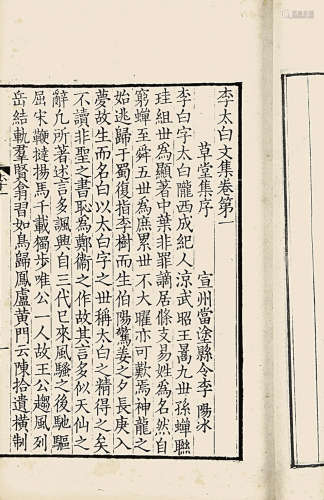 李太白文集卷第一
草堂集序
宣州當塗縣令李陽冰
李白字太白隴西成紀人涼武昭王暠九世孫蟬聯
珪組世爲顯著中葉非罪謫居條支易姓爲名然自
窮蟬至舜五世爲庶累世不大曜亦可歎焉神龍之
始逃歸于蜀復指李樹而生伯陽驚姜之夕長庚入
夢故生而名白以太白字之世稱太白之精得之矣
不讀非聖之書恥爲鄭衞之作故其言多似天仙之
辭凢所著述言多諷興自三代已來風騷之後馳驅
屈宋鞭撻揚馬千載獨步唯公一人故王公趨風列
岳結軌羣賢翕習如鳥歸鳳盧黃門云陳拾遺橫制